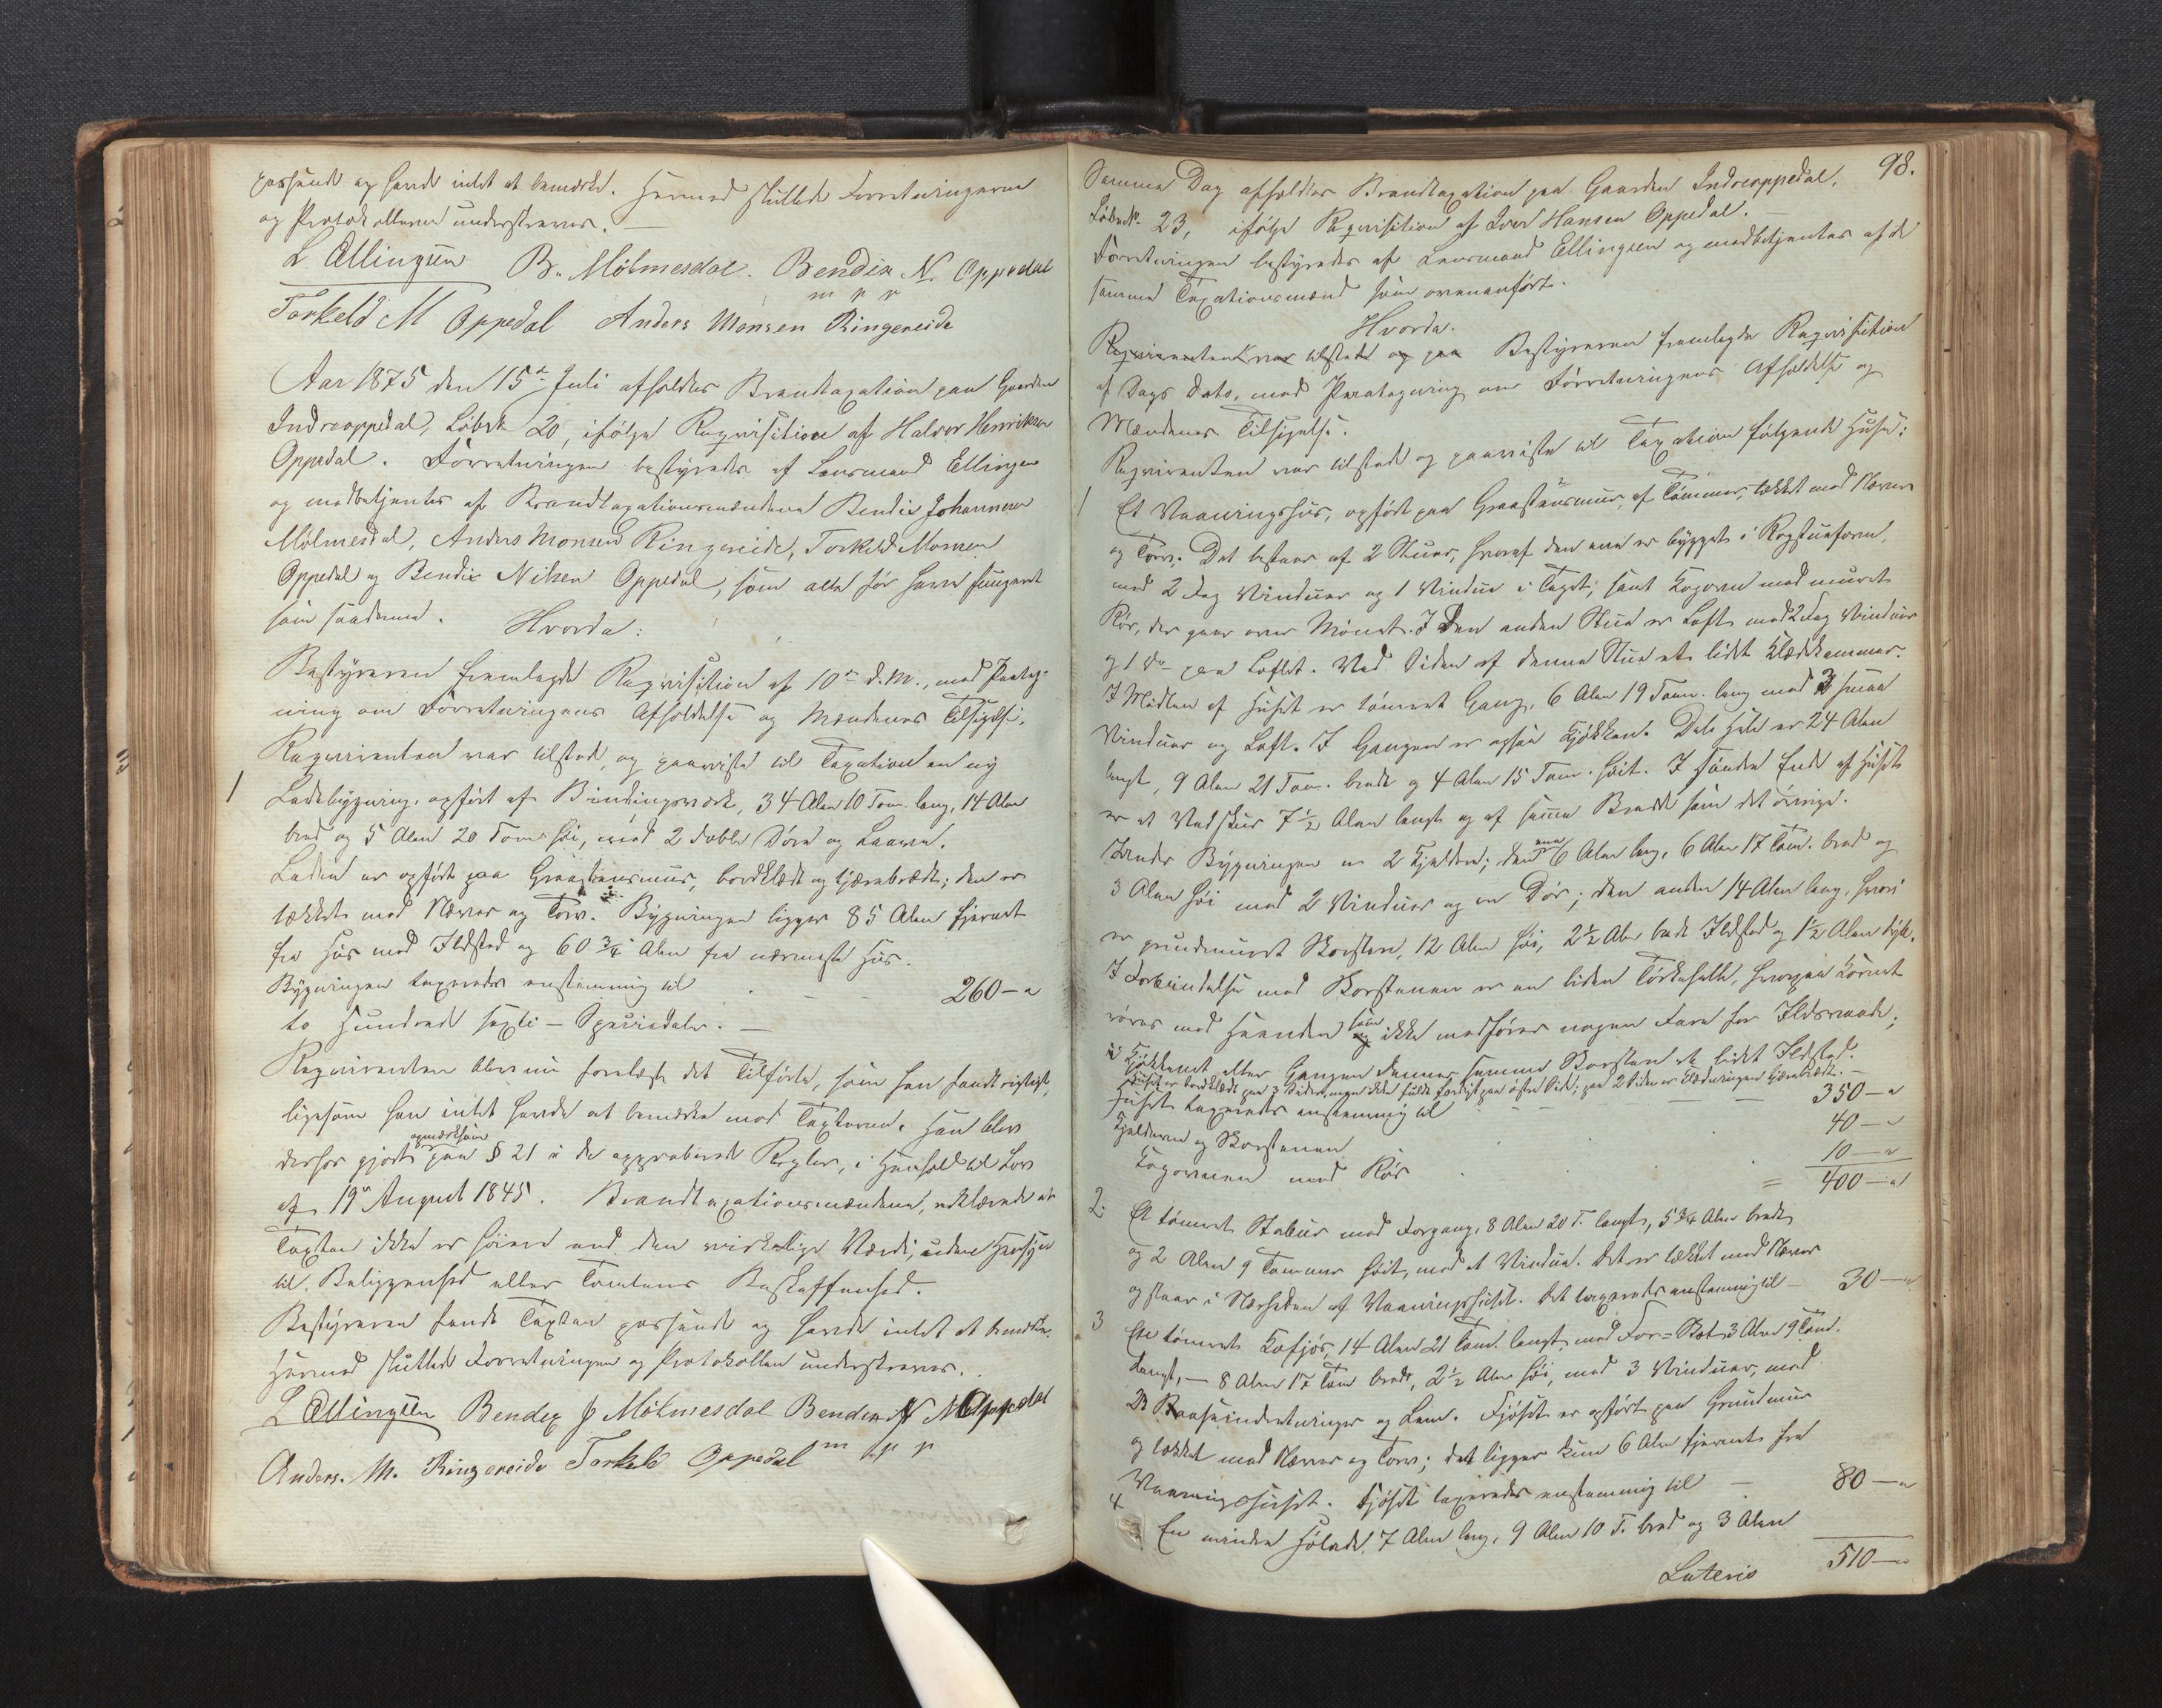 passende og havde intet at bemærke. Hermed sluttede Forretningerne
og Protokollerne underskreves. —
L Ellingsen B. Mølmesdal. Bendix N. Oppedal
m p p
Torkeld M Oppedal Anders Monsen Ringereide
Aar 1875 den 15de Juli afholdtes Brandtaxation paa Gaarden
Indreoppedal, Løbnr 20, ifølge Requisition af Halvor Henriksen
Oppedal. Forretningen bestyredes af Lensmand Ellingsen
og medbetjentes af Brandtaxationsmændene Bendix Johannesen
Mølmesdal, Anders Monsen Ringereide, Torkeld Monsen
Oppedal og Bendix Nilsen Oppedal, som alle før have fungeret
som saadanne. Hvorda:
Bestyreren fremlagde Requisition af 10de d. M., med Paateg-
ning om Forretningens Afholdelse og Mændenes Tilsigelse.
Requirenten var tilstede, og paaviste til Taxation en ny
1 Ladebygning, opført af Bindingsværk, 34 Alen 10 Tom. lang, 14 Alen
bred og 5 Alen 20 Tom. høi, med 2 doble Døre og Laaver.
Laden er opført paa Graastensmuur, bordklædt og tjærebrædt; den er
tækket med Næver og Torv. Bygningen ligger 85 Alen fjernet
fra Huus med Ildsted og 60 3/4 Alen fra nærmeste Huus.
Bygningen taxeredes enstemmig til - - 260 — "
to Hundrede sexti - Speciedaler. —
Requirenten blev nu forelæst det Tilførte, som han fandt rigtigt,
ligesom han intet havde at bemærke mod Taxterne. Han blev
derhos gjort opmærksom paa § 21 i de approberede Regler, i Henhold til Lov
af 19de August 1845. Brandtaxationsmændene erklærede at
Taxten ikke er høiere end den virkelige Værdi, uden Hensyn
til Beliggenhed eller Tomtens Beskaffenhed.
Bestyreren fandt Taxten passende og havde intet at bemærke.
Hermed sluttede Forretningen og Protokollen underskreves.
L Ellingsen Bendix J Mølmesdal Bendix N Oppedal
Anders. M. Ringereide Torkeld Oppedal m p p
98.
Samme Dag afholdtes Brandtaxation paa Gaarden Indreoppedal,
Løbnr. 23, ifølge Requisition af Iver Hansen Oppedal. —
Forretningen bestyredes af Lensmand Ellingsen og medbetjentes af de
samme Taxationsmænd som ovenanført.
Hvorda.
Requirenten var tilstede og paa Bestyreren fremlagde Requisition
af Dags Dato, med Paategning om Forretningens Afholdelse og
Mændenes Tilsigelse.
Requirenten var tilstede og paaviste til Taxation følgende Huse:
1 Et Vaaningshus, opført paa Graastensmuur, af Tømmer, tækket med Næver
og Torv. Det bestaar af 2 Stuer, hvoraf den ene er bygget i Rogstueform,
med 2 Fag Vinduer og 1 Vindue i Taget; samt Kogovn med muret
Rør, der gaar over Mønet. I den anden Stue er Loft med 2 Fag Vinduer
og 1 do paa Loftet. Ved Siden af denne Stue et lidet Klædekammer.
I Midten af Huset er tømret Gang, 6 Alen 19 Tom. lang med 2 smaa
Vinduer og Loft. I Gangen er ogsaa Kjøkken. Dette Hele er 24 Alen
langt, 9 Alen 21 Tom. bredt og 4 Alen 15 Tom. høit. I søndre Ende af Huset
er et Vedskur 7 1/2 Alen langt og af samme Bredde som det øvrige.
Under Bygningen er 2 Kjeldere; den ene 6 Alen lang, 6 Alen 17 Tom. bred og
3 Alen høi med 2 Vinduer og en Dør; den anden 14 Alen lang, hvori
er grundmuret Skorsten, 12 Alen høi, 2 1/2 Alen bredt Ildsted og 1 1/2 Alen dybt.
I Forbindelse med Skorstenen er en liden Tørkehelle, hvorpaa Kornet
røres med Haanden som ikke medfører nogen Fare for Ildsvaade;
i Kjøkkenet eller Gangen danner samme Skorsten et lidet Ildsted.
Huset er bordklædt paa 3 Sider, men ikke fuldt færdigt paa østre Side; paa 2 Sider er Klædningen tjærebrædt. —
Huset taxeredes enstemmig til - - - 350 — "
Kjelderen og Skorstenen 40 — "
Kogovnen med Rør 10 — "
= 400 — "
2. Et tømret Stabur med Forgang, 8 Alen 20 T. langt, 5 3/4 Alen bredt
og 2 Alen 9 Tommer høit, med et Vindue. Det er tækket med Næver
og staar i Nærheden af Vaaningshuset. Det taxeredes enstemmig til - 30 — "
3 Et tømret Kofjøs, 14 Alen 21 Tom. langt, med For-Skot 3 Alen 9 Tom.
langt, — 8 Alen 17 Tom bredt, 2 1/2 Alen høi, med 3 Vinduer, med
Baaseindretninger og Lem. Fjøset er opført paa Grundmuur
og tækket med Næver og Torv; det ligger kun 6 Alen fjernet fra
Vaaningshuset. Fjøset taxeredes enstemmig til - 80 — "
4 En mindre Høladе, 7 Alen lang, 9 Alen 10 T. bred og 3 Alen
Lateris 510 — "